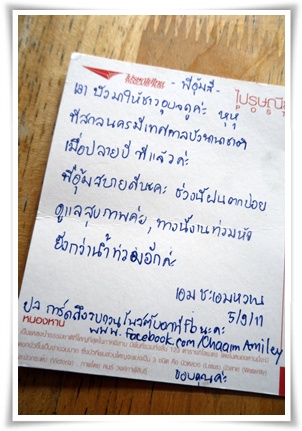 - พี่อุ้มสี -
ไปรษณีย
เอา บัวมาให้ชาวอุบลดูค่ะ หุหุ
ที่สกลนครมีเทศกาลบัวนานาชาติ
เมื่อปลายปี ที่แล้วค่ะ
พี่อุ้มสบายดีนะคะ ช่วงนี้ฝนตกบ่อย
ดูแลสุขภาพค่ะ, ทางนี้งานท่วมหัว
ยิ่งกว่าน้ำท่วมอีกค่ะ
เอม ชะเอมหวาน
5/9/11
ปล การ์ดถึงรบกวนโพสต์บอกที่ fb นะคะ
www.facebook.com/chaaim Amiley
หนองหาน
ขอบคุณค่ะ